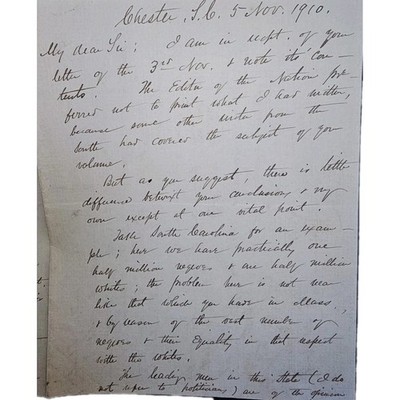 Chester, S.C. 5 Nov. 1910.
My dear Sir; I am in rcpt. of your
letter of the 3rd Nov. & note its con-
tents. The Editor of the Nation pre-
ferred not to print what I had written,
because some other writer from the
South had covered the subject of your
volume.
But as you suggest, there is little
difference betwixt your conclusions & my
own except at one vital point.
Take South Carolina for an exam-
ple; here we have practically one
half million negroes & one half million
whites; the problem here is not
like that which you have in Mass.;
& by reason of the vast number of
negroes & their equality in that respect
with the whites.
The leading men in this State (I do
not refer to politicians) are of the opinion